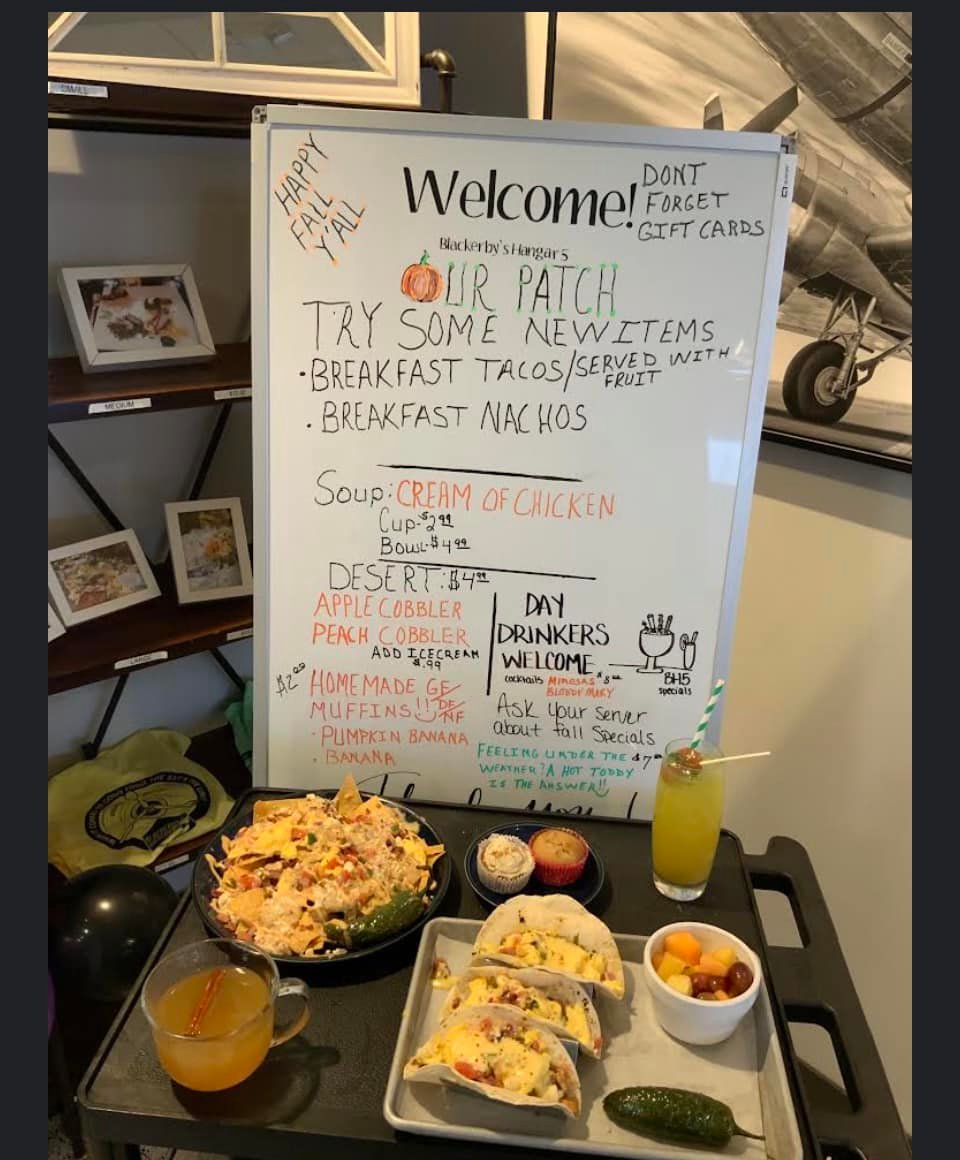 SMALL
HAPPY
FALL
Y'ALL
Welcome!
DONT
FORGET
GIFT CARDS
Blackerby's Hangar 5
OUR PATCH
TRY SOME NEW ITEMS
• BREAKFAST TACOS/SERVED WITH
FRUIT
• BREAKFAST NACHOS
MEDIUM
Soup: CREAM OF CHICKEN
Cup-$2.99
Bowl-$4.99
DESERT: $4.99
APPLE COBBLER
PEACH COBBLER
ADD ICECREAM
$.99
LARGE
$2.00
HOMEMADE GF/
MUFFINS!! DF/
NF
• PUMPKIN BANANA
• BANANA
DAY
DRINKERS
WELCOME
cocktails MIMOSAS $8.00
BLOODY MARY
BH5
specials
Ask your server
about fall specials
FEELING UNDER THE $7.00
WEATHER? A HOT TODDY
IS THE ANSWER!!
Thank You!